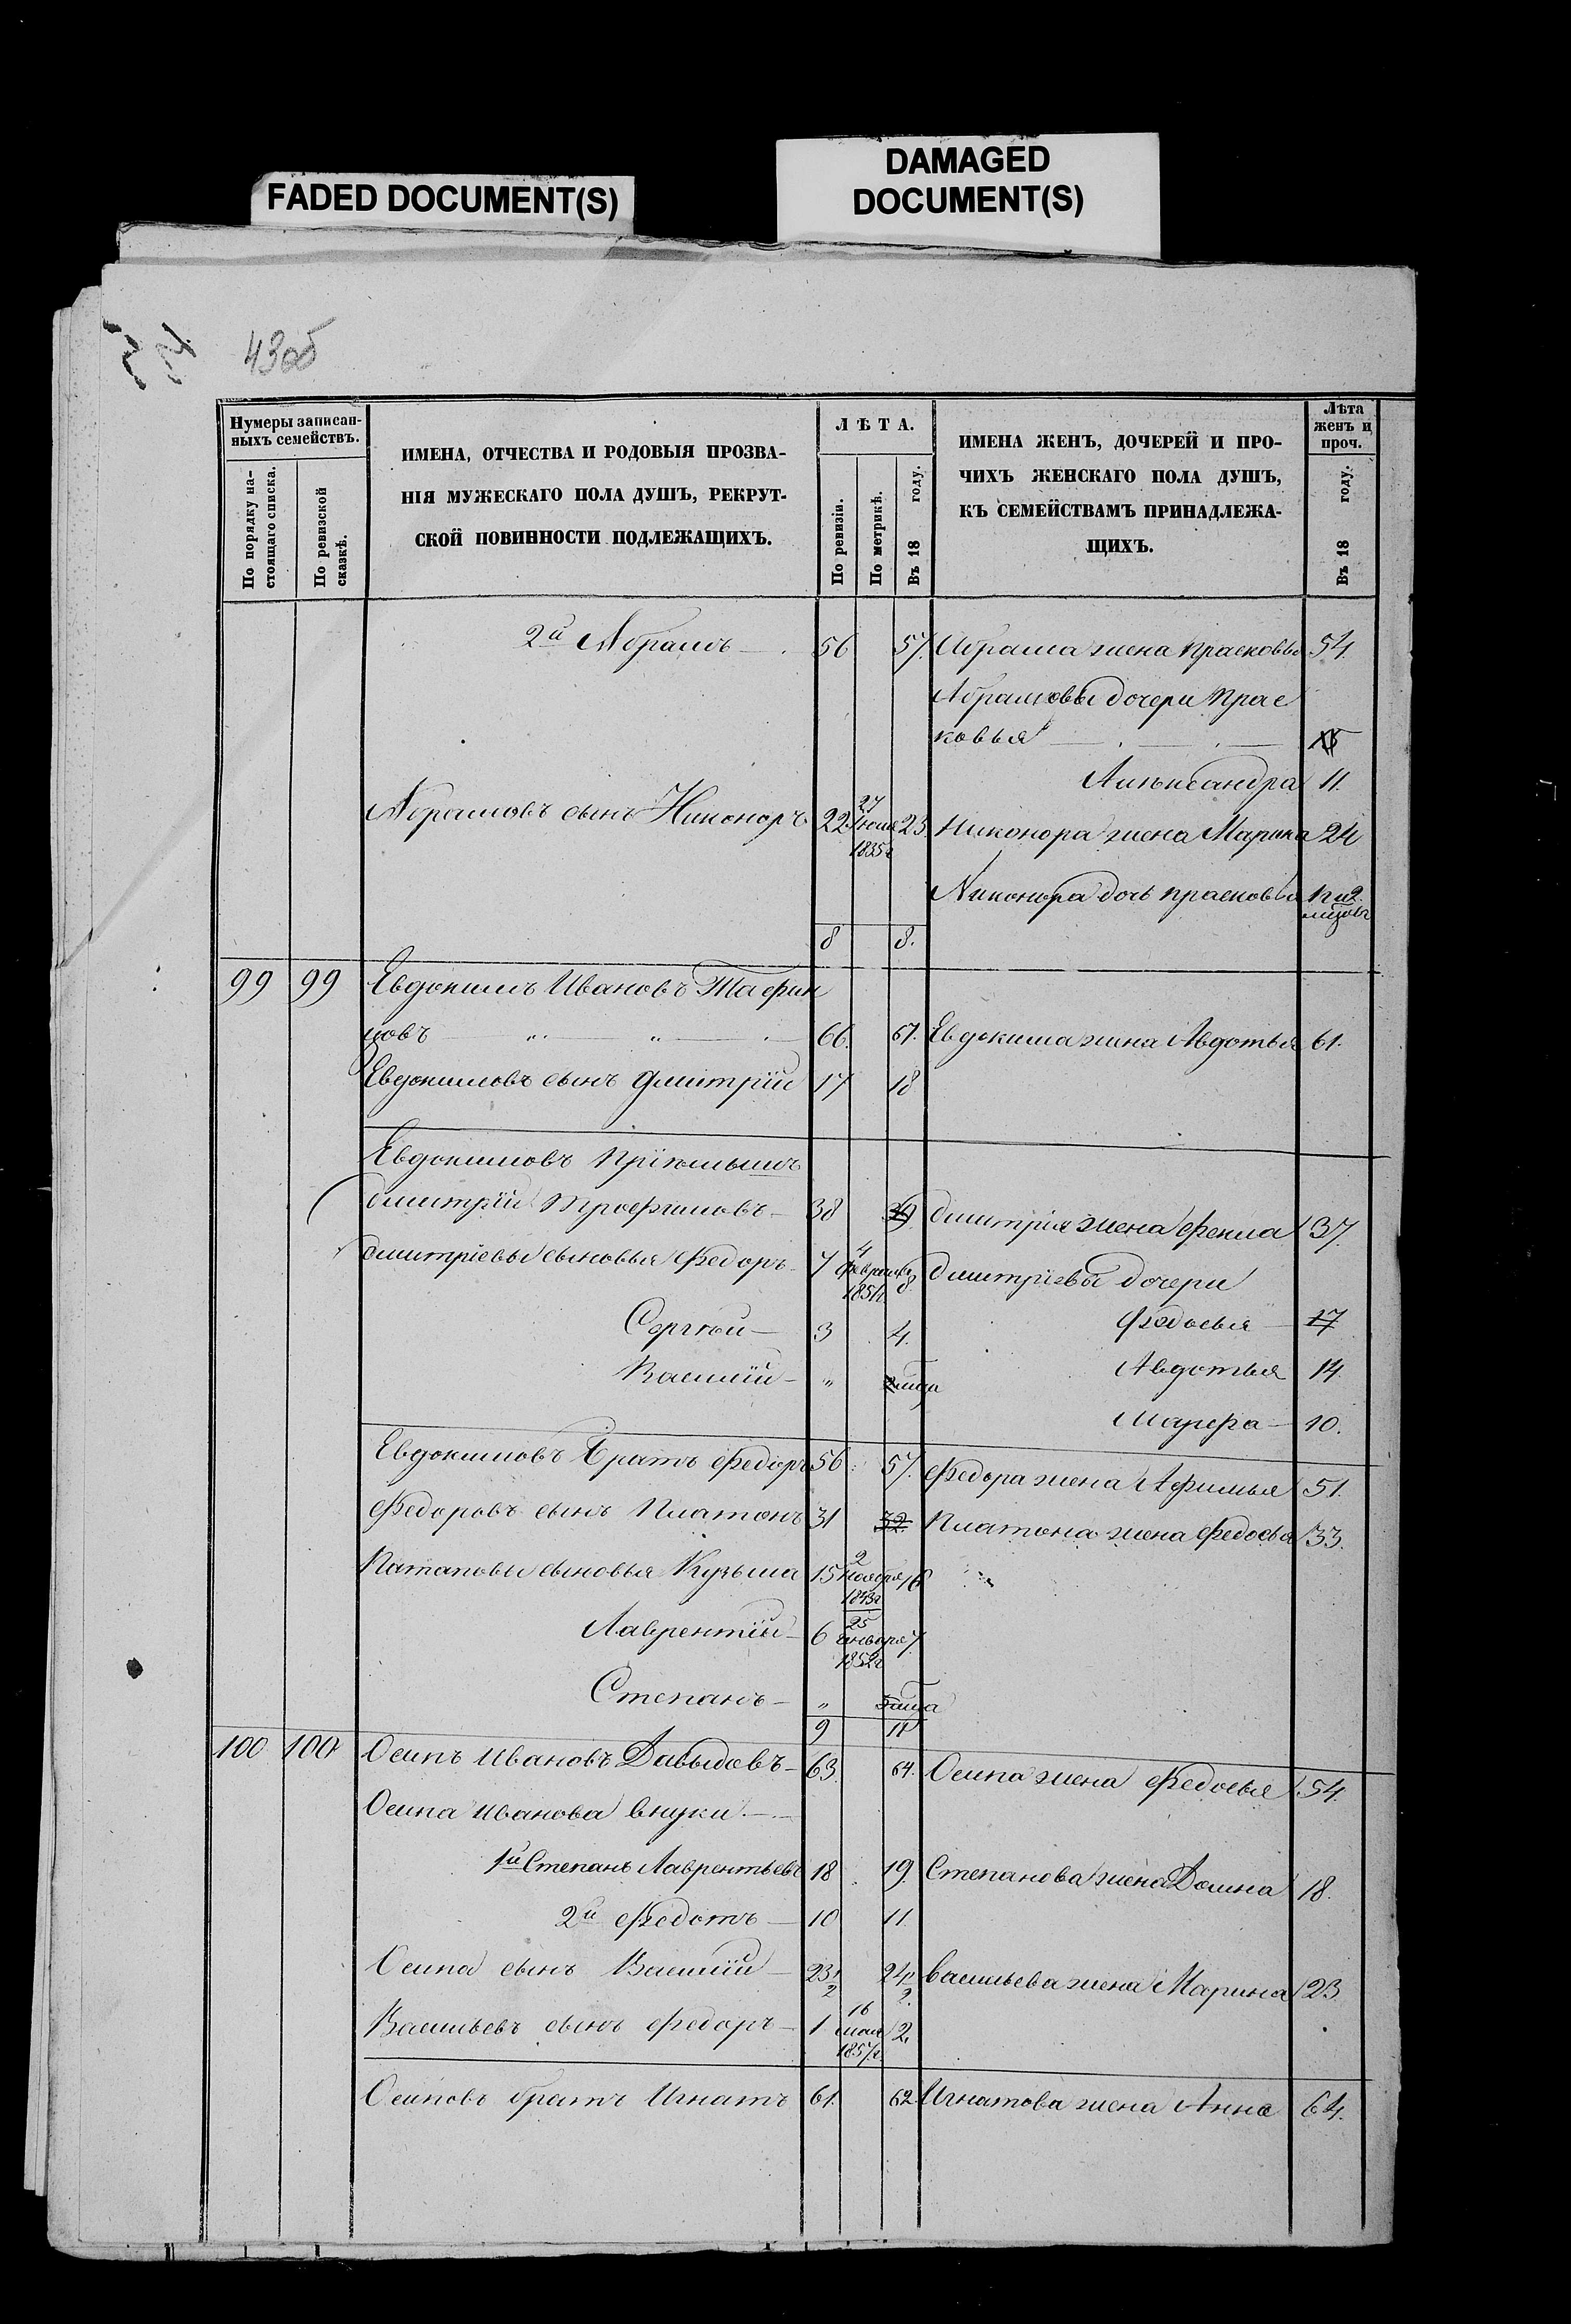 FADED DOCUMENT(S)
DAMAGED
DOCUMENT(S)
43об
Нумеры записан-
ныхъ семействъ.
По порядку на-
стоящаго списка.
По ревизской
сказкѣ.
ИМЕНА, ОТЧЕСТВА И РОДОВЫЯ ПРОЗВА-
НІЯ МУЖЕСКАГО ПОЛА ДУШЪ, РЕКРУТ-
СКОЙ ПОВИННОСТИ ПОДЛЕЖАЩИХЪ.
ЛѢТА.
По ревизіи.
По метрикѣ.
Въ 18 году.
ИМЕНА ЖЕНЪ, ДОЧЕРЕЙ И ПРО-
ЧИХЪ ЖЕНСКАГО ПОЛА ДУШЪ,
КЪ СЕМЕЙСТВАМЪ ПРИНАДЛЕЖА-
ЩИХЪ.
Лѣта
женъ и
проч.
Въ 18 году.
2й Абрамъ 56 57. Абрама жена Прасковья 54.
Абрамовы дочери Прас
ковья
Александра 11.
Абрамовъ сынъ Никоноръ 22 27 Іюля 1835г 23. Никонора жена Марина 24
Никонора дочь Прасковья
8 8.
99 99 Евдокимъ Ивановъ
66. 67. Евдокима жена Авдотья 61.
Евдокимовъ сынъ Дмитрій 17 18
Евдокимовъ Пріёмышъ
Дмитрій Трофимовъ 38 39 Дмитрія жена Фекла 37.
Дмитріевы сыновья Федоръ 7 4 февраля 1851г 8. Дмитріевы дочери
Сергѣй 3 4. Федосья 17
Василій „ Авдотья 14.
Марфа 10.
Евдокимовъ Братъ Федоръ 56 57. Федора жена Афимья 51.
Федоровъ сынъ Платонъ 31 32 Платона жена Федосья 33.
сыновья Кузьма 15 2 ноября 1843г 16
Лаврентій 6 25 января 1852г 7.
Степанъ „
9 11
100 100 Осипъ Ивановъ Давыдовъ 63. 64. Осипа жена Федосья 54.
Осипа Иванова внуки
1й Степанъ Лаврентьевъ 18 19. Степанова жена Домна 18.
2й Федотъ 10 11.
Осипа сынъ Василій 23½ 24½ Васильева жена Марина 23.
Васильевъ сынъ Федоръ 1 16 мая 1857г. 2.
Осиповъ братъ Игнатъ 61. 62 Игнатова жена Анна 64.